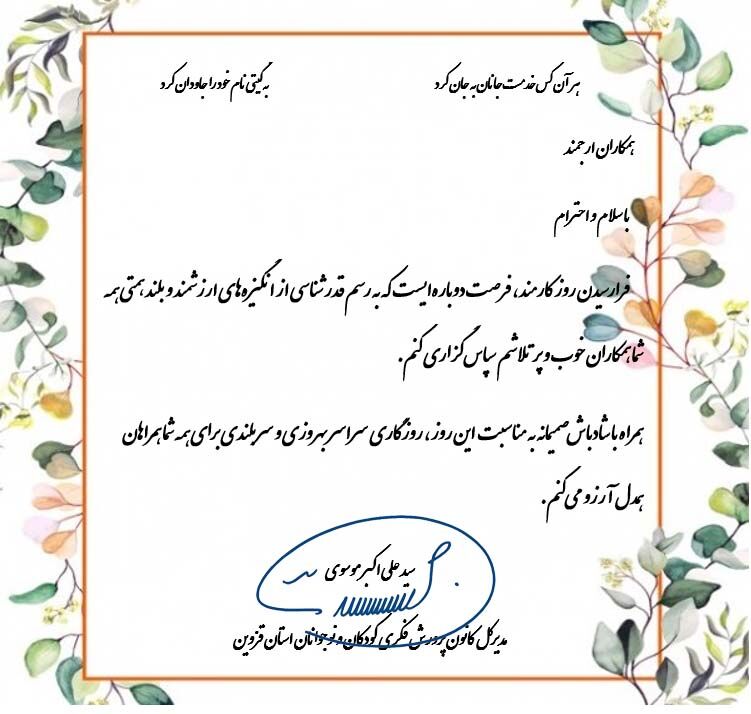 هر آن کس خدمت جانان به جان کرد به گیتی نام خود را جاودان کرد
همکاران ارجمند
باسلام و احترام
فرارسیدن روز کارمند، فرصت دوباره ایست که به رسم قدرشناسی از انگیزه های ارزشمند و بلند همتی همه
شما همکاران خوب و پر تلاشم سپاس گزاری کنم.
همراه با شادباش صمیمانه به مناسبت این روز، روزگاری سراسر بهروزی و سربلندی برای همه شما همراهان
همدل آرزو می کنم.
سید علی اکبر موسوی
مدیر کل کانون پرورش فکری کودکان و نوجوانان استان قزوین